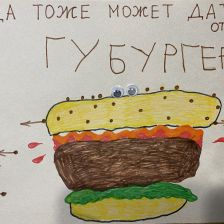 ДА ТОЖЕ МОЖЕТ ДАТ
ОТ
ГУБУРГЕ